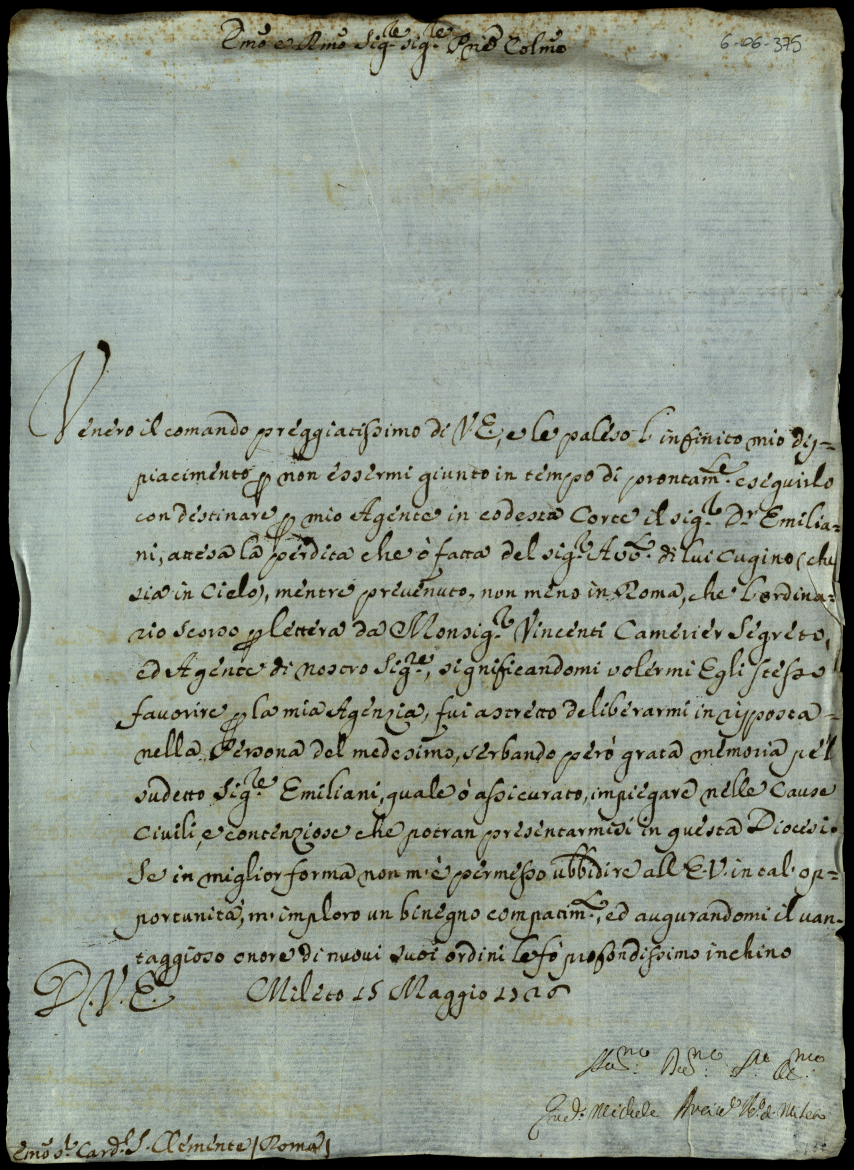 Emo e Rmo Sigre Sigre Prõe Colmo
6-06-375
Venero il comando preggiatissimo di V.E., e le paleso l'infinito mio dis=
piacimento p non essermi giunto in tempo di prontamte eseguirlo
con destinare p mio Agente in codesta Corte il sigr Dr Emilia=
ni, attesa la perdita che ò fatta del sigr Abbe di lui Cugino (che
sia in Cielo), mentre prevenuto, non meno in Roma, che l'ordina=
rio scorso p lettera da Monsigr Vincenti Camerier Segreto,
ed Agente di nostro Sigre, significandomi volermi Egli stesso
favorire p la mia Agenzia, fui astretto deliberarmi in risposta
nella Persona del medesimo, serbando però grata memoria pel
sudetto Sigre Emiliani, quale ò assicurato, impiegare nelle Cause
Civili, e contenziose che potran presentarmisi in questa Diocesi.
Se in miglior forma non m'è permesso ubbidire all'E.V. in tal'op=
portunità, m'imploro un benegno compatimto, ed augurandomi il van=
taggioso onore di nuovi suoi ordini le fò profondissimo inchino
D.V.E. Mileto 15 Maggio
Michele Vo di Mileto
Emo Sr Cardl S. Clemente (Roma)